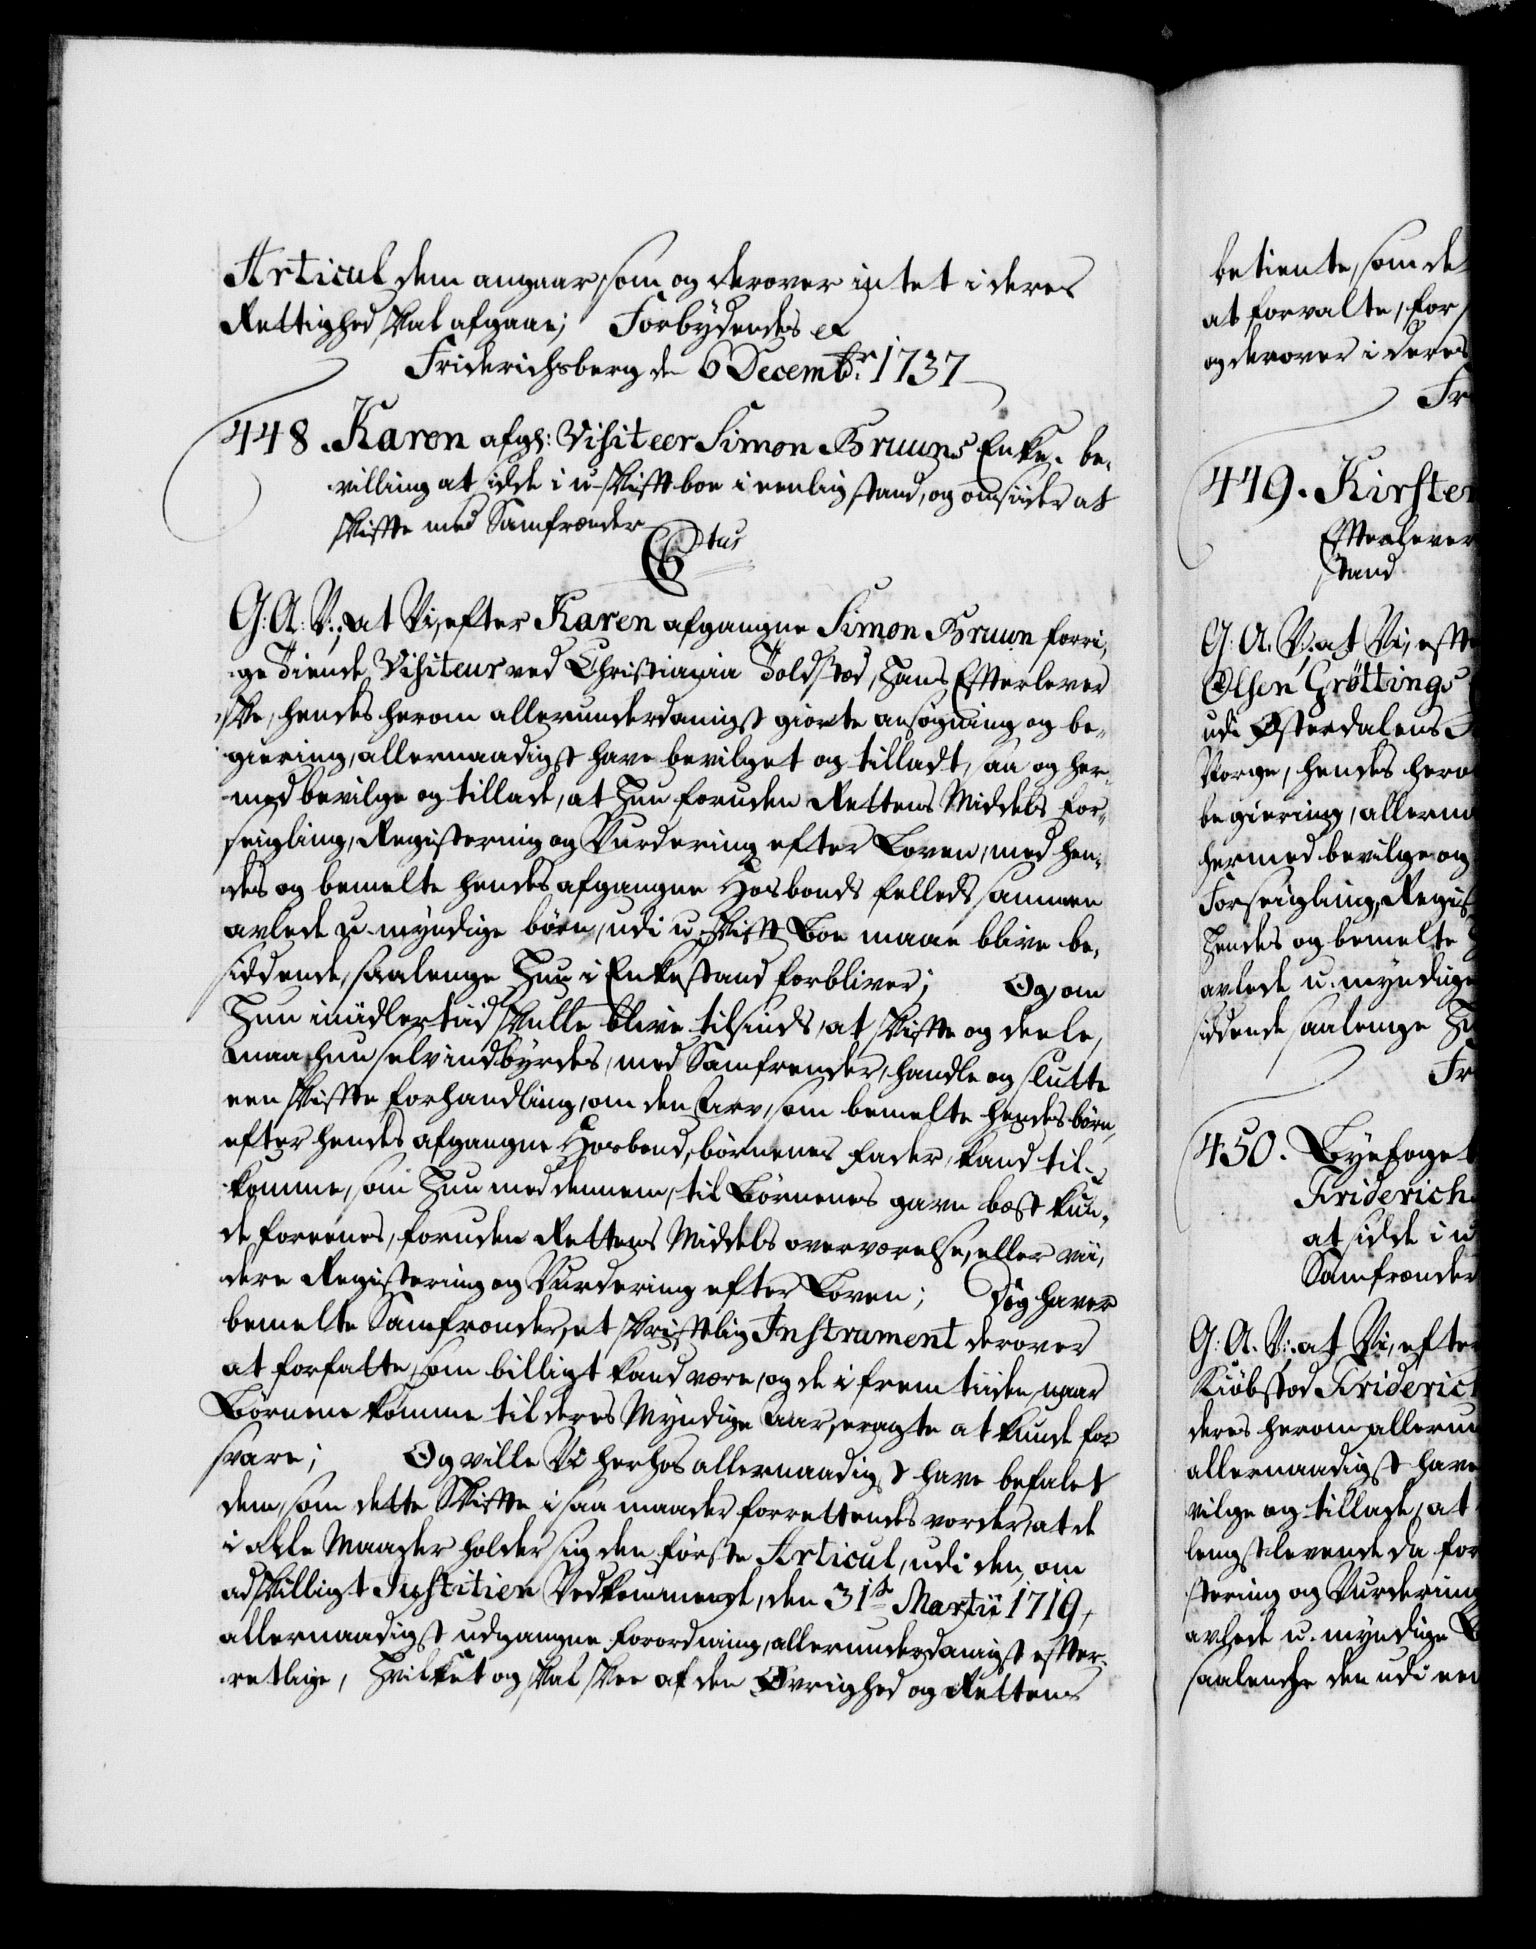 Articul dem angaar, som og derover intet i deres
Rettighed skal afgaae; Forbydendes &c
Friderichsberg den 6 Decembr: 1737
448. Karen afg: Visiteer Simon Bruuns Enke. be-
villing at sidde i u-skift boe i eenlig stand, og omsider at
skifte med Samfrænder
Ctus
G: A: V:, at Vi, efter Karen afgangne Simon Bruun forri-
ge Tiende Visiteur ved Christiania Toldsted, Hans Efterlever-
ske, hendes herom allerunderdanigst giorte ansøgning og be-
giering, allernaadigst have bevilget og tilladt, saa og her-
med bevilge og tillade, at Hun foruden Rettens Middels For-
seigling, Registering og Vurdering efter Loven, med hen-
des og bemelte hendes afgangne Hosbonds felleds sammen
avlede u-myndige børn, udi u-skift Boe maae blive be-
siddende, saalenge Hun i Enkestand forbliver; Og om
Hun imidlertiid skulle blive tilsinds, at skifte og deele,
maa hun selv indbyrdes, med Samfrender, handle og slutte
een skifte forhandling, om den Arv, som bemelte hendes børn,
efter hendes afgangne Hosbond, børnenes Fader, kand til-
komme, som Hun med dennem, til Børnenes gavn best kun-
de foreenes, foruden Rettens Middels overværelse, eller vii-
dere Registering og Vurdering efter Loven; Dog haver
bemelte Samfrænder, et skriftlig Instrument derover
at forfatte, som billigt kand være, og de i fremtiiden, naar
Børnene komme til deres Myndige Aar, eragte at kunde for
svare; Og ville Vi herhos allernaadigst have befalet
dem, som dette Skifte i saa maader forrettendes vorder, at de
i alle Maader holder sig den første Articul, udi den, om
adskilligt Justitien Vedkommende, den 31te Martii 1719,
allernaadigst udgangne Forordning, allerunderdanigst efter-
retlige, Hvilket og skal skee af den Øvrighed og Rettens
betiente, som de
at forvalte, for
og derover i deres
Fr
449. Kirsten
Efterlever
stand
G: A: V: at Vi, efte
Olsen Grøttings
udi Østerdalens
Norge, hendes hero
begiering, allerna
hermed bevilge og
Forseigling, Regis
Hendes og bemelte
avlede u-myndige
siddende saalenge Hu
Fr
450. Byefoget
Friderich
at sidde i u
Samfrænder
G: A: V: at Vi, efter
Kiøbsted Friderich
deres herom allerun
allernaadigst have
vilge og tillade, at
lengstlevende da for
stering og Vurdering
avlede u-myndige B
saalenge den udi een